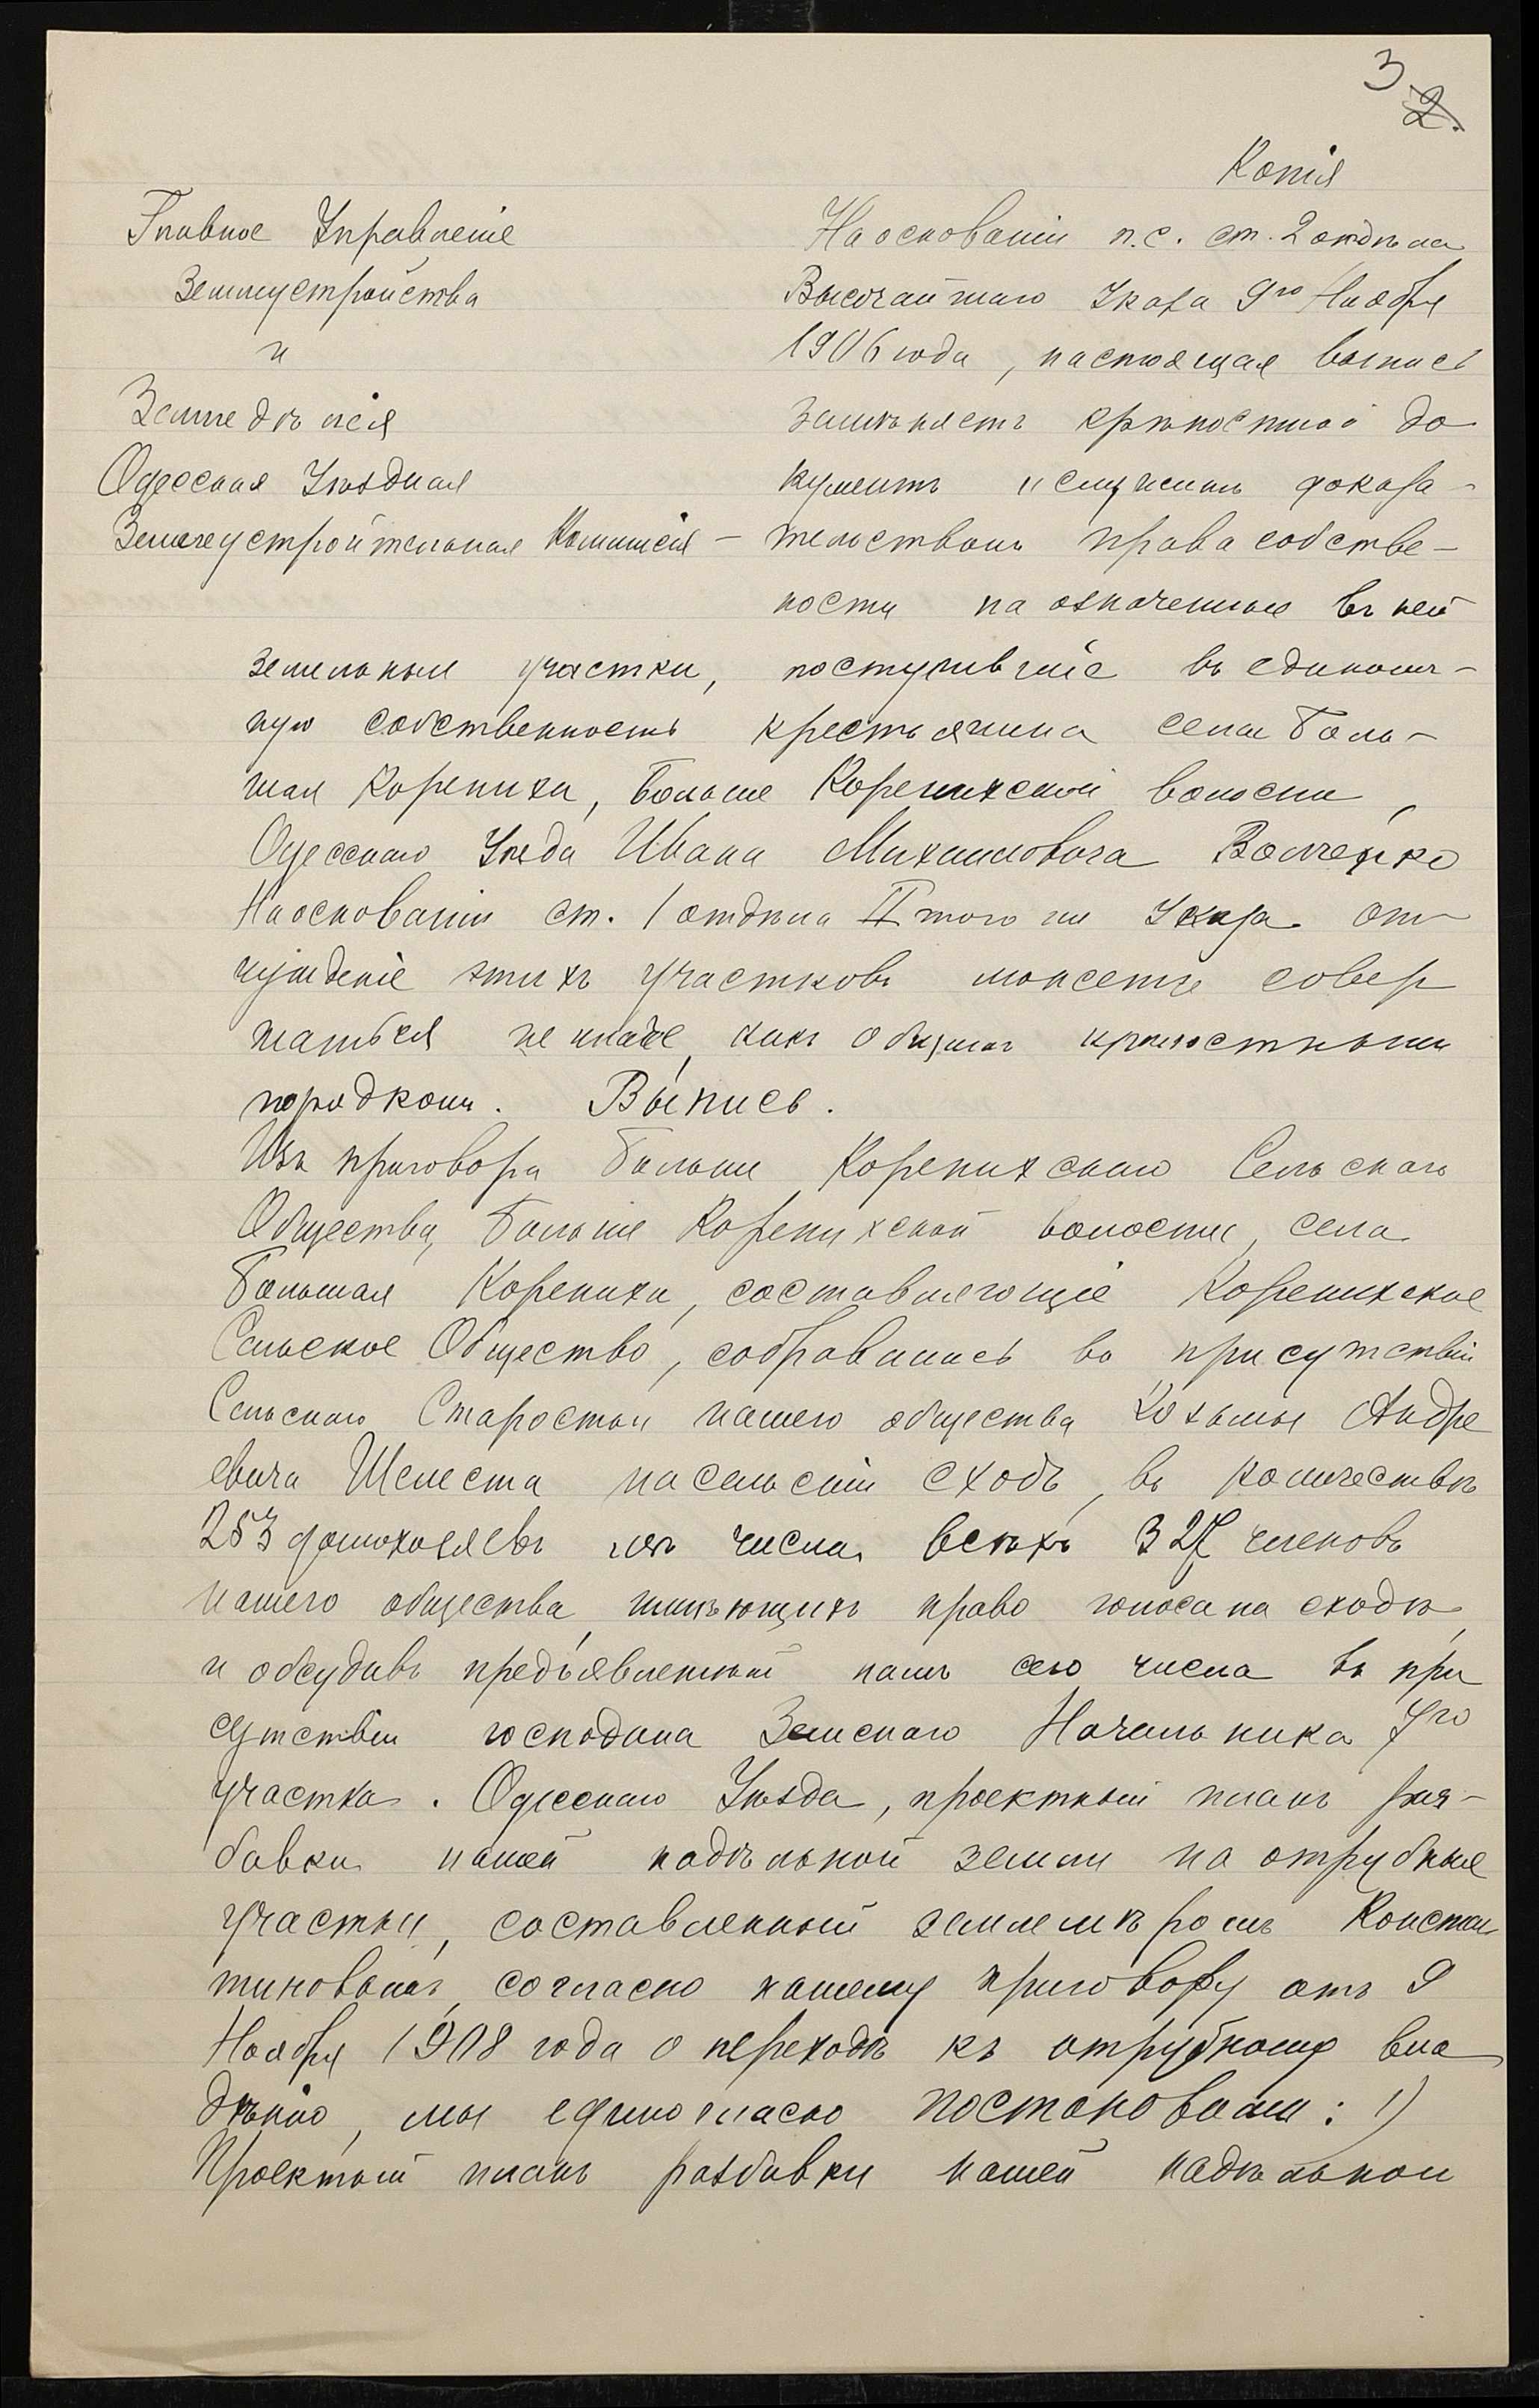 3
2.
Копія
Главное Управленіе
Землеустройства
и
Земледѣлія
Одесская Уѣздная
Землеустроительная Коммисія –
На основаніи п.с. ст. 2 отдѣла
Высочайшаго Указа 9го Ноября
1906 года, настоящая выпись
замѣняетъ крѣпостной до
кументъ и служитъ доказа–
тельствомъ права собстве–
ности на означенные въ ней
земельные участки, поступившіе въ единолич–
ную собственность крестьянина села Боль–
шая Корениха, Больше Коренихской волости,
Одесскаго Уѣзда Ивана Михайловича Волченко
На основаніи ст. 1 отдѣла II того же Указа от
чужденіе этихъ участковъ можетъ совер
шаться не иначе, какъ общимъ крѣпостнымъ
порядкомъ. Выпись.
Изъ приговора Больше Коренихскаго Сельскаго
Общества, Больше Коренихской волости, села
Большая Корениха, составляющіе Коренихское
Сельское Общество, собравшись въ присутствіи
Сельскаго Старосты нашего общества Козьмы Андре
евича Шелеста на сельскій сходъ, въ количествѣ
253 домохозяевъ изъ числа всѣхъ 327 членовъ
нашего общества, имѣющихъ право голоса на сходѣ,
и обсудивъ предъявленный намъ сего числа въ при
сутствіи господина Земскаго Начальника 7го
участка. Одесскаго Уѣзда, проектный планъ раз–
бивки нашей надѣльной земли на отрубные
участки, составленный землемѣромъ Констан
тиновымъ, согласно нашему приговору отъ 9
Ноября 1908 года о переходѣ къ отрубному вла
дѣнію, мы единогласно постановили: 1)
Проектный планъ разбивки нашей надѣльной